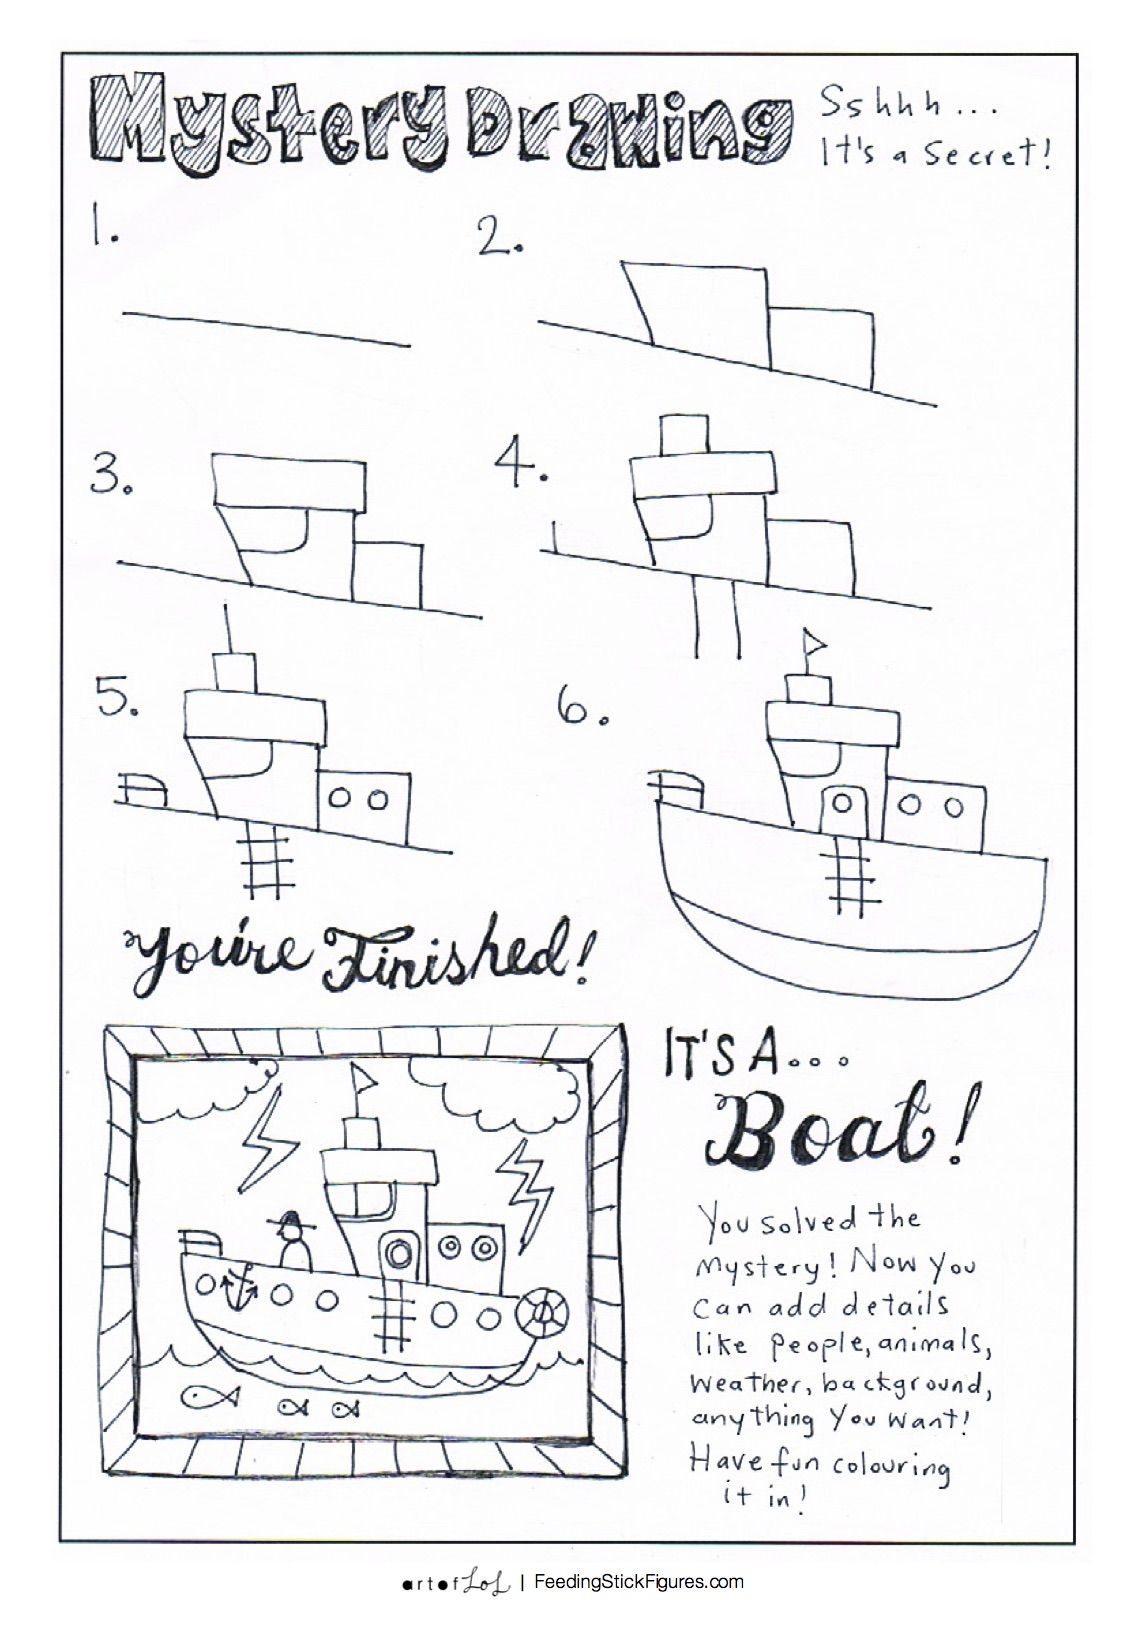 Mystery Drawing
Sshhh...
It's a Secret!
1.
2.
3.
4.
5.
6.
You're Finished!
IT'S A...
Boat!
You solved the
mystery! Now you
can add details
like people, animals,
weather, background,
anything you want!
Have fun colouring
it in!
art of LOL | FeedingStickFigures.com